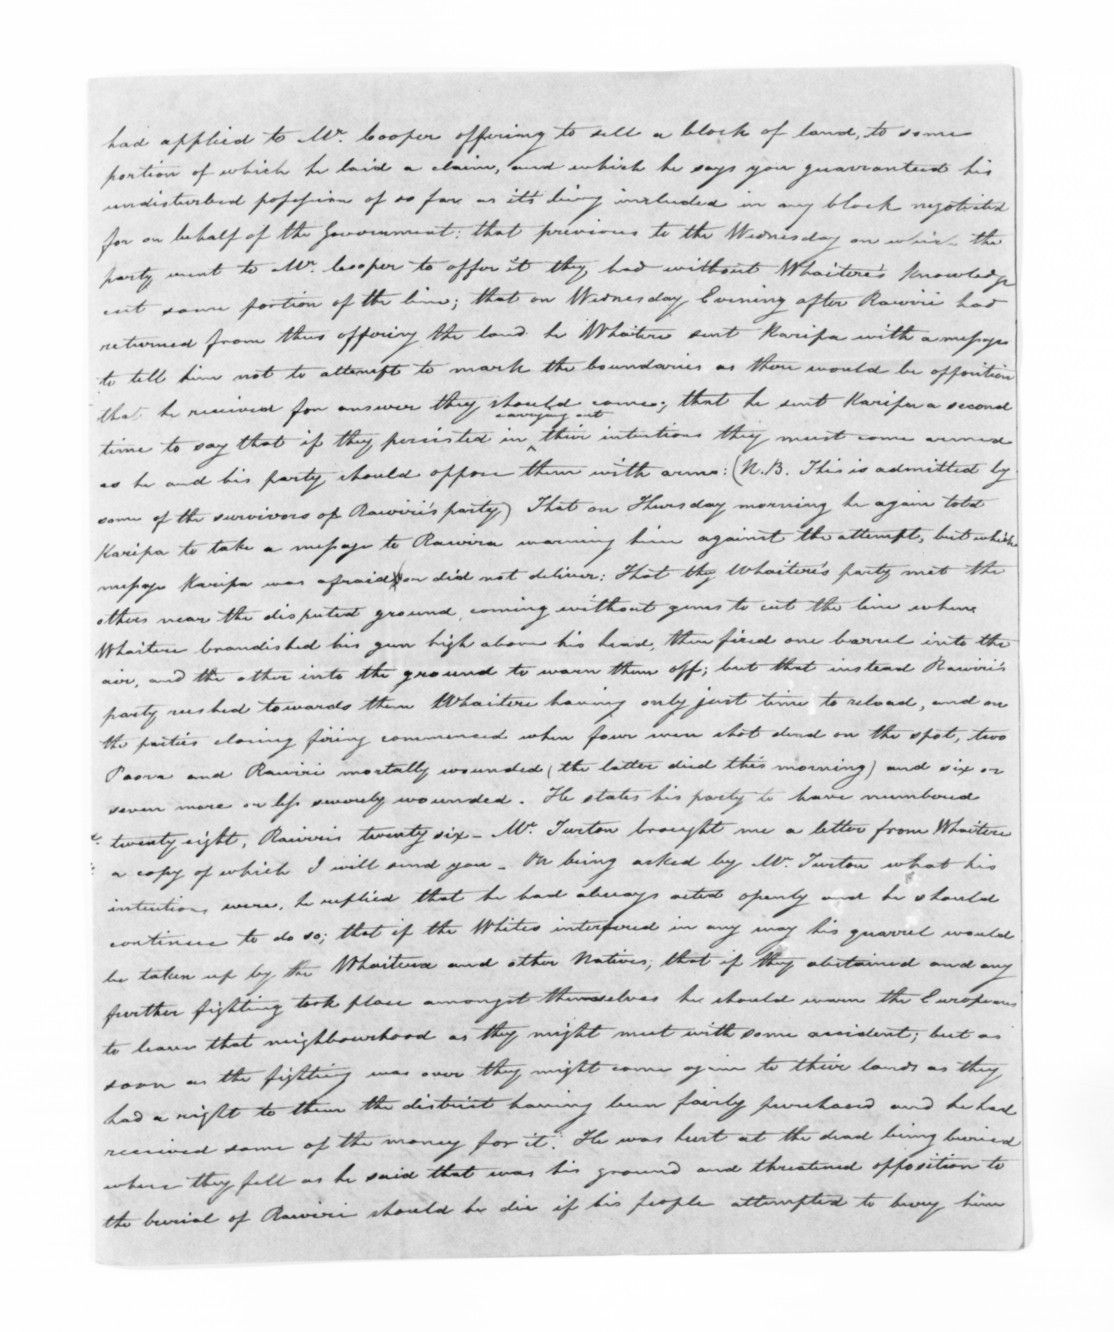 had applied to Mr. Cooper offering to sell a block of land, to some
portion of which he laid a claim, and which he says you guaranteed his
undisturbed possession of so far as its being included in any block negotiated
for on behalf of the Government: that previous to the Wednesday on which the
party went to Mr. Cooper to offer it they had without Whaitere's knowledge
cut some portion of the line; that on Wednesday Evening after Rawiri had
returned from thus offering the land he Whaitere sent Karipa with a message
to tell him not to attempt to mark the boundaries as there would be opposition
that he received for answer they should come; that he sent Karipa a second
time to say that if they persisted in carrying out their intentions they must come armed
as he and his party should oppose them with arms: (N.B. This is admitted by
some of the survivors of Rawiri's party) That on Thursday morning he again told
Karipa to take a message to Rawira warning him against the attempt, but which
message Karipa was afraid or did not deliver: That they Whaitere's party met the
others near the disputed ground, coming without guns to cut the line where
Whaitere brandished his gun high above his head, then fired one barrel into the
air, and the other into the ground to warn them off; but that instead Rawiri's
party rushed towards them Whaitere having only just time to reload, and on
the parties closing firing commenced when four were shot dead on the spot, two
Paora and Rawiri mortally wounded (the latter died this morning) and six or
seven more or less severely wounded. He states his party to have numbered
twenty eight, Rawiri's twenty six - Mr. Turton brought me a letter from Whaitere
a copy of which I will send you - On being asked by Mr. Turton what his
intentions were, he replied that he had always acted openly and he should
continue to do so; that if the Whites interfered in any way his quarrel would
be taken up by the Whaitera and other Natives; that if they abstained and any
further fighting took place amongst themselves he should warn the Europeans
to leave that neighbourhood as they might meet with some accident; but as
soon as the fighting was over they might come again to their lands as they
had a right to them the district having been fairly purchased and he had
received some of the money for it. He was hurt at the dead being buried
where they fell as he said that was his ground and threatened opposition to
the burial of Rawiri should he die if his people attempted to bury him